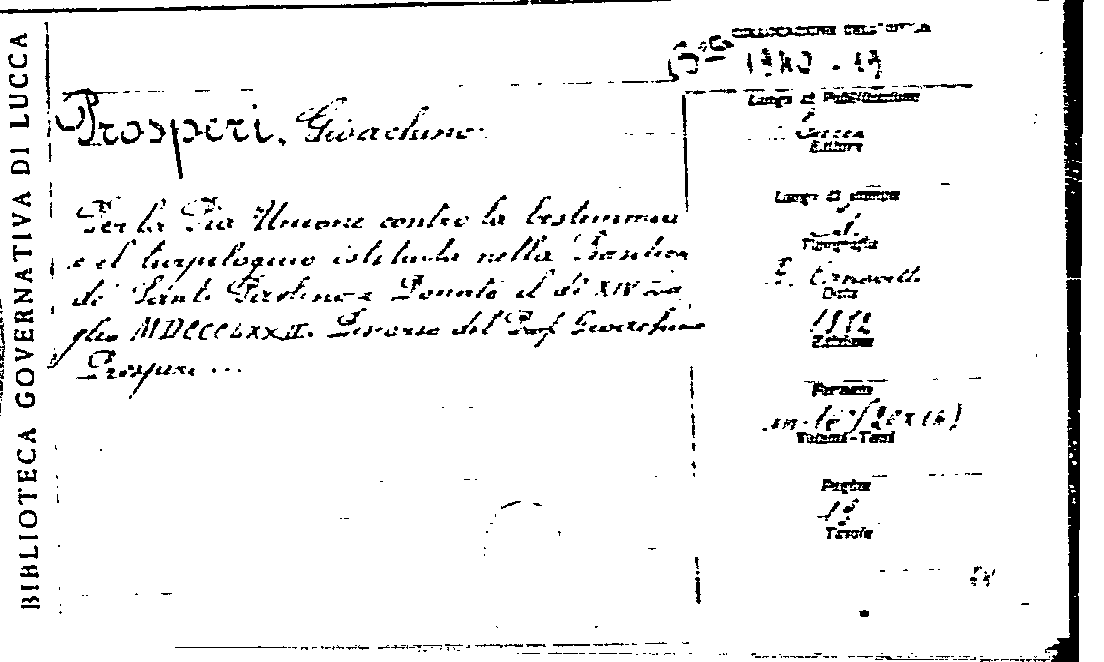 BIBLIOTECA GOVERNATIVA DI LUCCA
COLLOCAZIONE DELL'OPERA
Prosperi, Gioachino
Per la Pia Unione contro la bestemmia
e il turpiloquio istituita nella Basilica
di Santi Paolino e Donato il dì XIV Lu
glio MDCCCLXXII. Discorso del Prof. Gioachino
Prosperi ...
Luogo di Pubblicazione
Lucca
Editore
Luogo di stampa
Tipografia
Canovetti
Data
Edizione
Formato
Volumi-Tomi
Pagine
Tavole